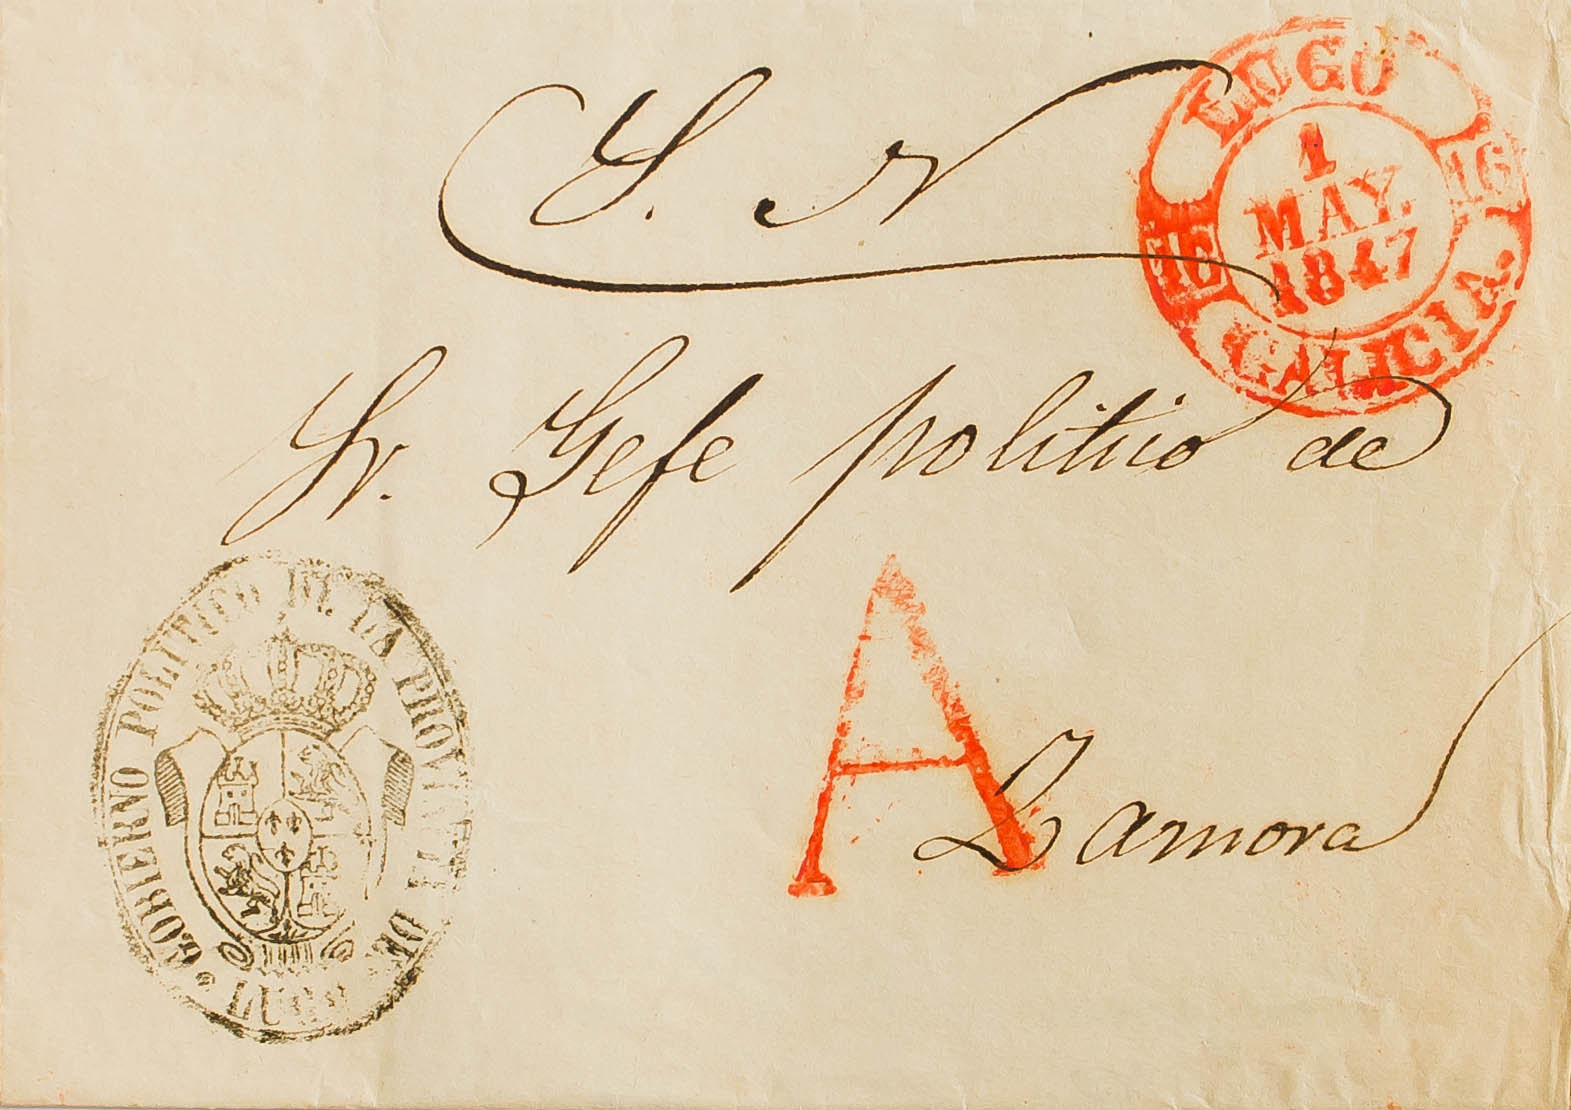 S. N
LUGO
1
MAY.
1847
16
16
GALICIA.
Sr. Gefe politico de
A
Zamora
GOBIERNO POLITICO DE LA PROVINCIA DE LUGO